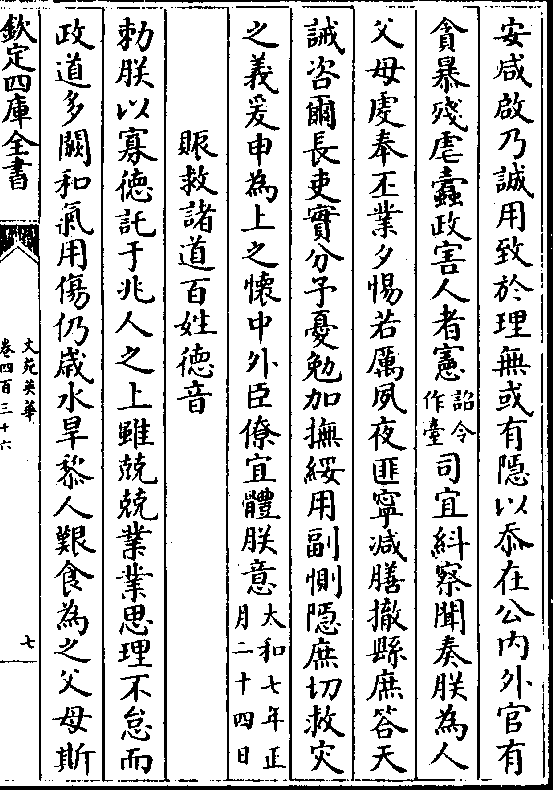 安咸啟乃誠用致於理無或有隱以忝在公内外官有
貪暴殘虐蠧政害人者憲詔令作臺司宜糾察聞奏朕為人
父母處奉丕業夕惕若厲夙夜匪寧减膳撤縣庶答天
誡咨爾長吏實分予憂勉加撫綏用副惻隠庶切救灾
之義爰申為上之懷中外臣僚宜體朕意大和七年正月二十四日
賑救諸道百姓德音
勅朕以寡德託于兆人之上雖兢兢業業思理不怠而
政道多闕和氣用傷仍歳水旱黎人艱食為之父母斯
欽定四庫全書
文苑英華
卷四百三十六
七